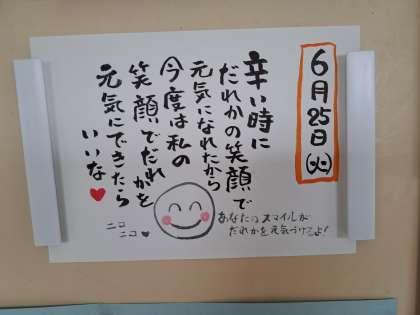 6月25日(火)
辛い時に
だれかの笑顔で
元気になれたから
今度は私の
笑顔でだれかを
元気にできたら
いいな♥
ニコ
ニコ♥
あなたのスマイルが
だれかを元気づけるよ!